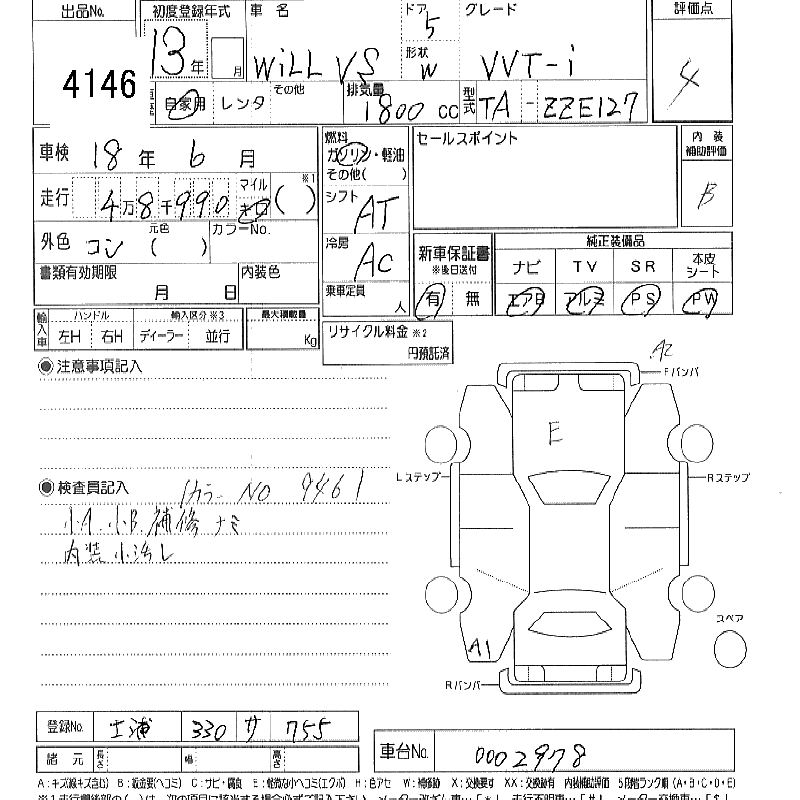 出品No. 初度登録年式 車名 ドア グレード 評価点
4146 13年 月 WiLL VS 5 VVT-i 4
形状 W
自家用 レンタ その他 排気量 1800 cc 型式 TA - ZZE127
車検 18年 6月 燃料 ガソリン・軽油 その他( ) セールスポイント 内装補助評価 B
走行 4万8千990 マイル キロ ( ) ※1 シフト AT
外色 コン 元色 ( ) カラーNo. 冷房 AC 新車保証書 ※後日送付 有 無 純正装備品
ナビ TV SR 本皮シート
エアB アルミ PS PW
書類有効期限 月 日 内装色 乗車定員 人
輸入車 ハンドル 左H 右H 輸入区分※3 ディーラー 並行 最大積載量 Kg リサイクル料金 ※2 円預託済
注意事項記入
A2
Fバンパ
E
Lステップ Rステップ
検査員記入 カラー NO 9461
小A.小B.補修ナミ
内装小汚レ
スペア
A1
Rバンパ
登録No. 土浦 330 サ 755
諸元 長さ 幅 高さ 車台No. 0002978
A:キズ(線キズ含む) B:鈑金要(ヘコミ) C:サビ・腐食 E:軽微な小ヘコミ(エクボ) H:色アセ W:補修跡 X:交換要す XX:交換跡有 内装補助評価 5段階ランク順(A・B・C・D・E)